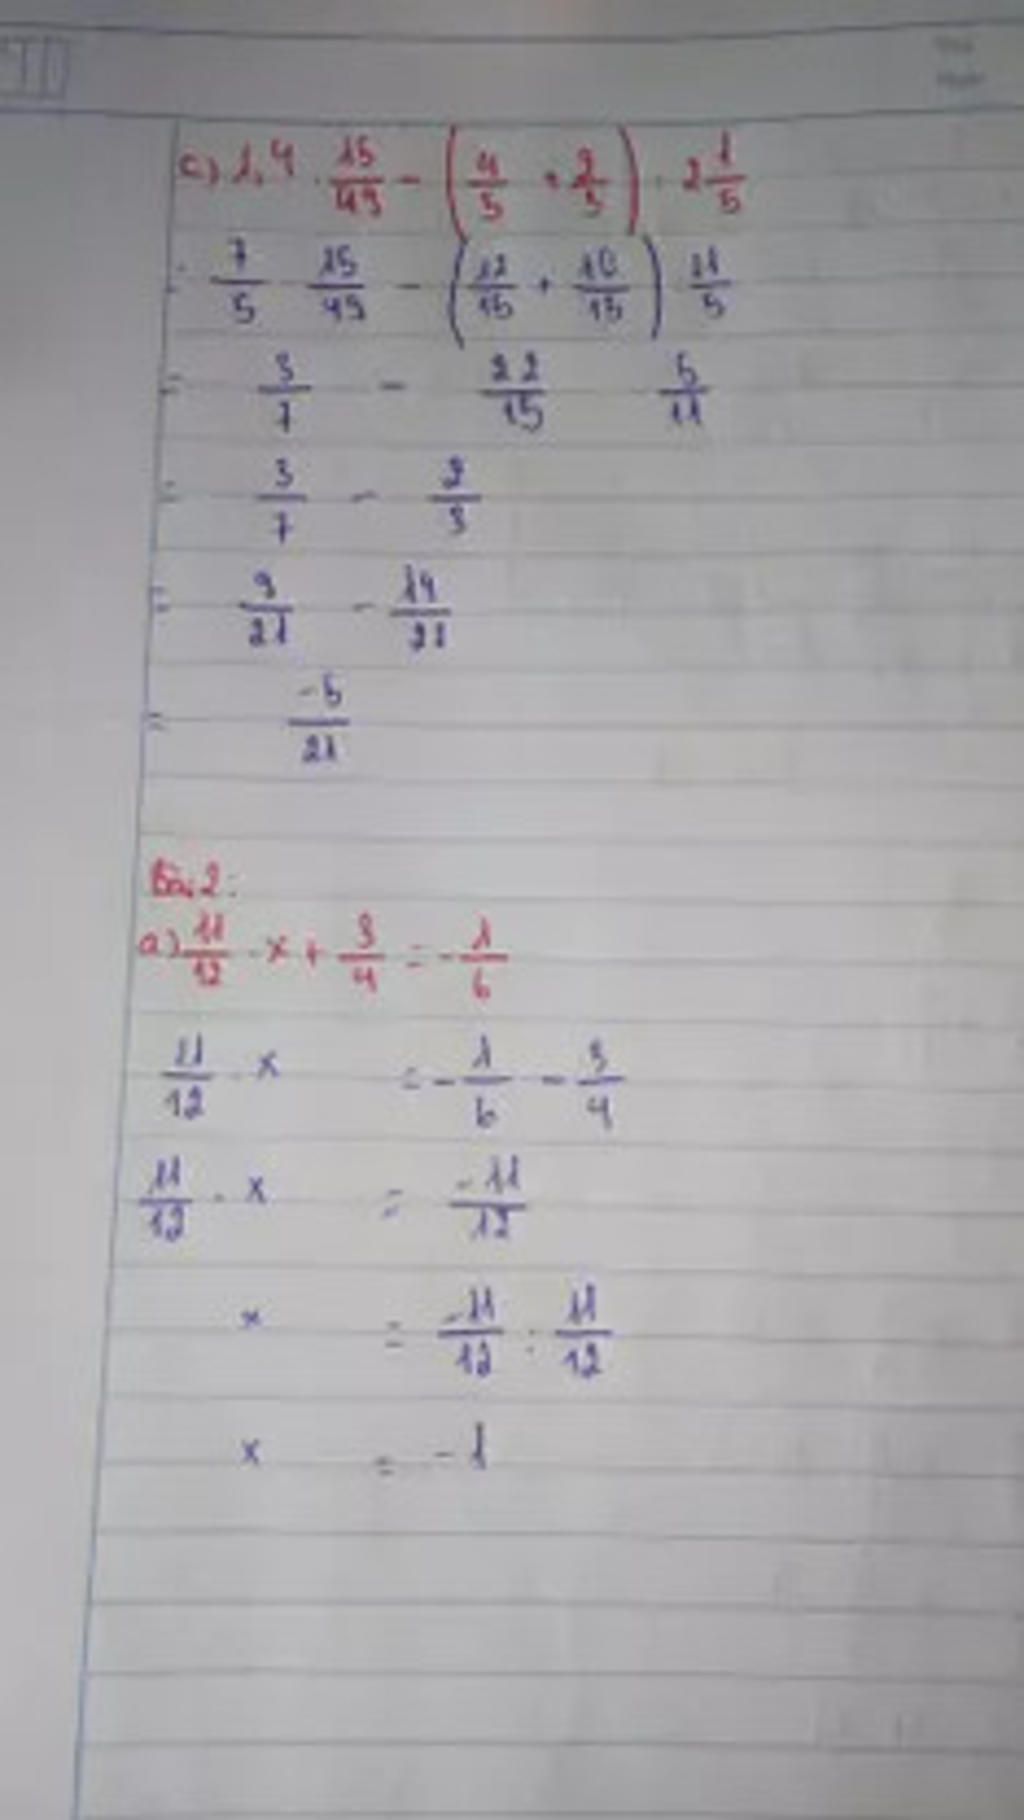 c) 1,4 . 15/49 - (4/5 + 2/3) : 2 1/5
= 7/5 . 15/49 - (12/15 + 10/15) : 11/5
= 3/7 - 22/15 . 5/11
= 3/7 - 2/3
= 9/21 - 14/21
= -5/21
Bài 2:
a) 11/12 . x + 3/4 = - 1/6
11/12 . x = - 1/6 - 3/4
11/12 . x = -11/12
x = -11/12 : 11/12
x = -1